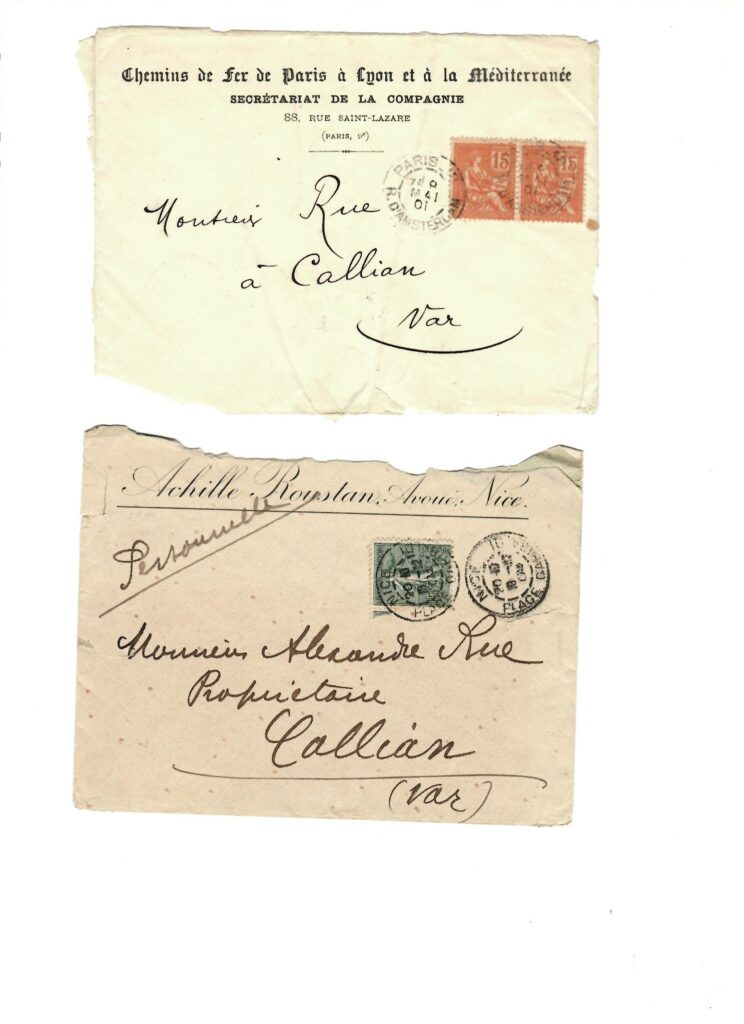 Chemins de Fer de Paris à Lyon et à la Méditerranée
SECRÉTARIAT DE LA COMPAGNIE
88, RUE SAINT-LAZARE
(PARIS, 9e)
15 15
PARIS
7E 8
MAI
01
R. D'AMSTERDAM
Monsieur Rue
à Callian
Var
Achille Roustan, Avoué, Nice.
Personnelle
NICE
PLACE GARIBALDI
NICE
PLACE GARIBALDI
Monsieur Alexandre Rue
Propriétaire
Callian
(Var)